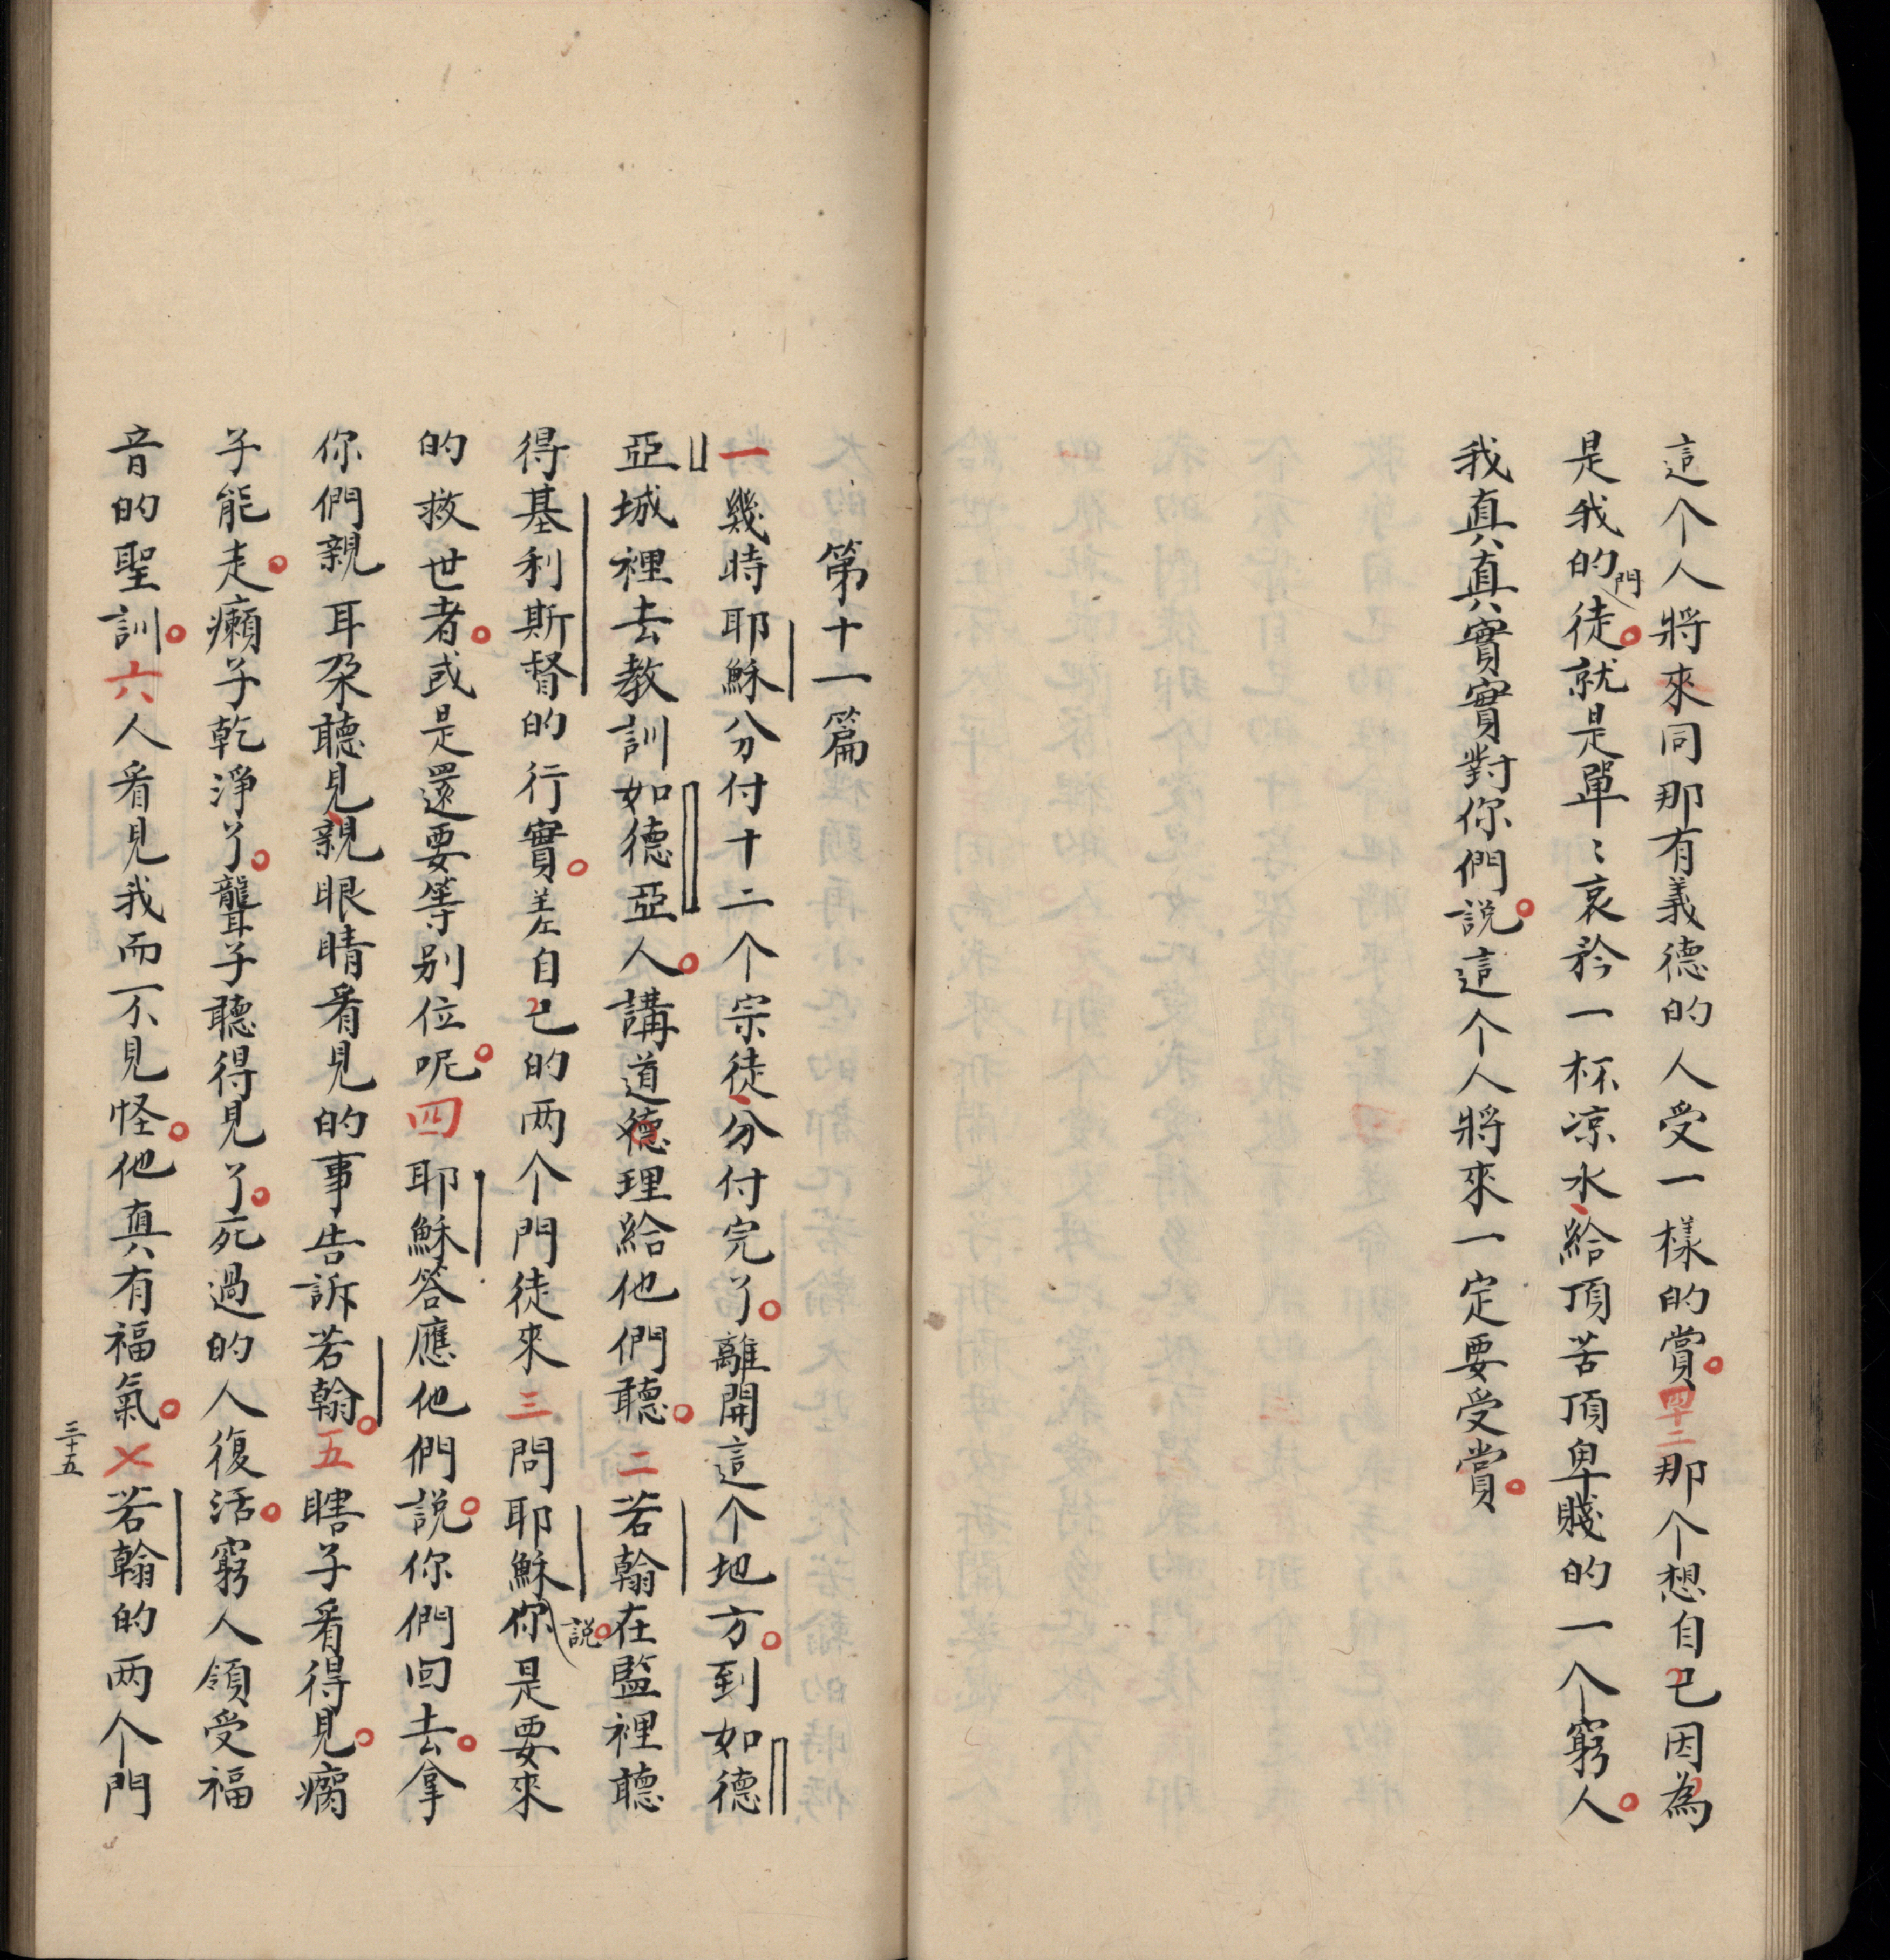 這个人將來同那有義德的人受一樣的賞。四十二那个想自己因為
是我的門徒。就是單〻哀矜一杯凉水、給頂苦頂卑賤的一个窮人。
我真真實實對你們説。這个人將來一定要受賞。
第十一篇
一幾時耶穌分付十二个宗徒、分付完了。離開這个地方。到如德
亞城裡去教訓如德亞人。講道德理給他們聽。二若翰在監裡聽
得基利斯督的行實。差自己的两个門徒來三問耶穌説。你是要來
的救世者。或是還要等别位呢。四耶穌答應他們説。你們回去。拿
你們親耳朶聽見、親眼睛看見的事告訴若翰。五瞎子看得見。瘸
子能走。癩子乾淨了。聾子聽得見了。死過的人復活。窮人領受福
音的聖訓。六人看見我而不見怪。他真有福氣。七若翰的两个門
三十五